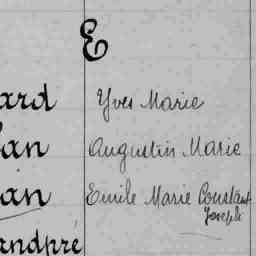 E
ard Yves Marie
an Augustin Marie
an Emile Marie Constant
Joseph
andpré